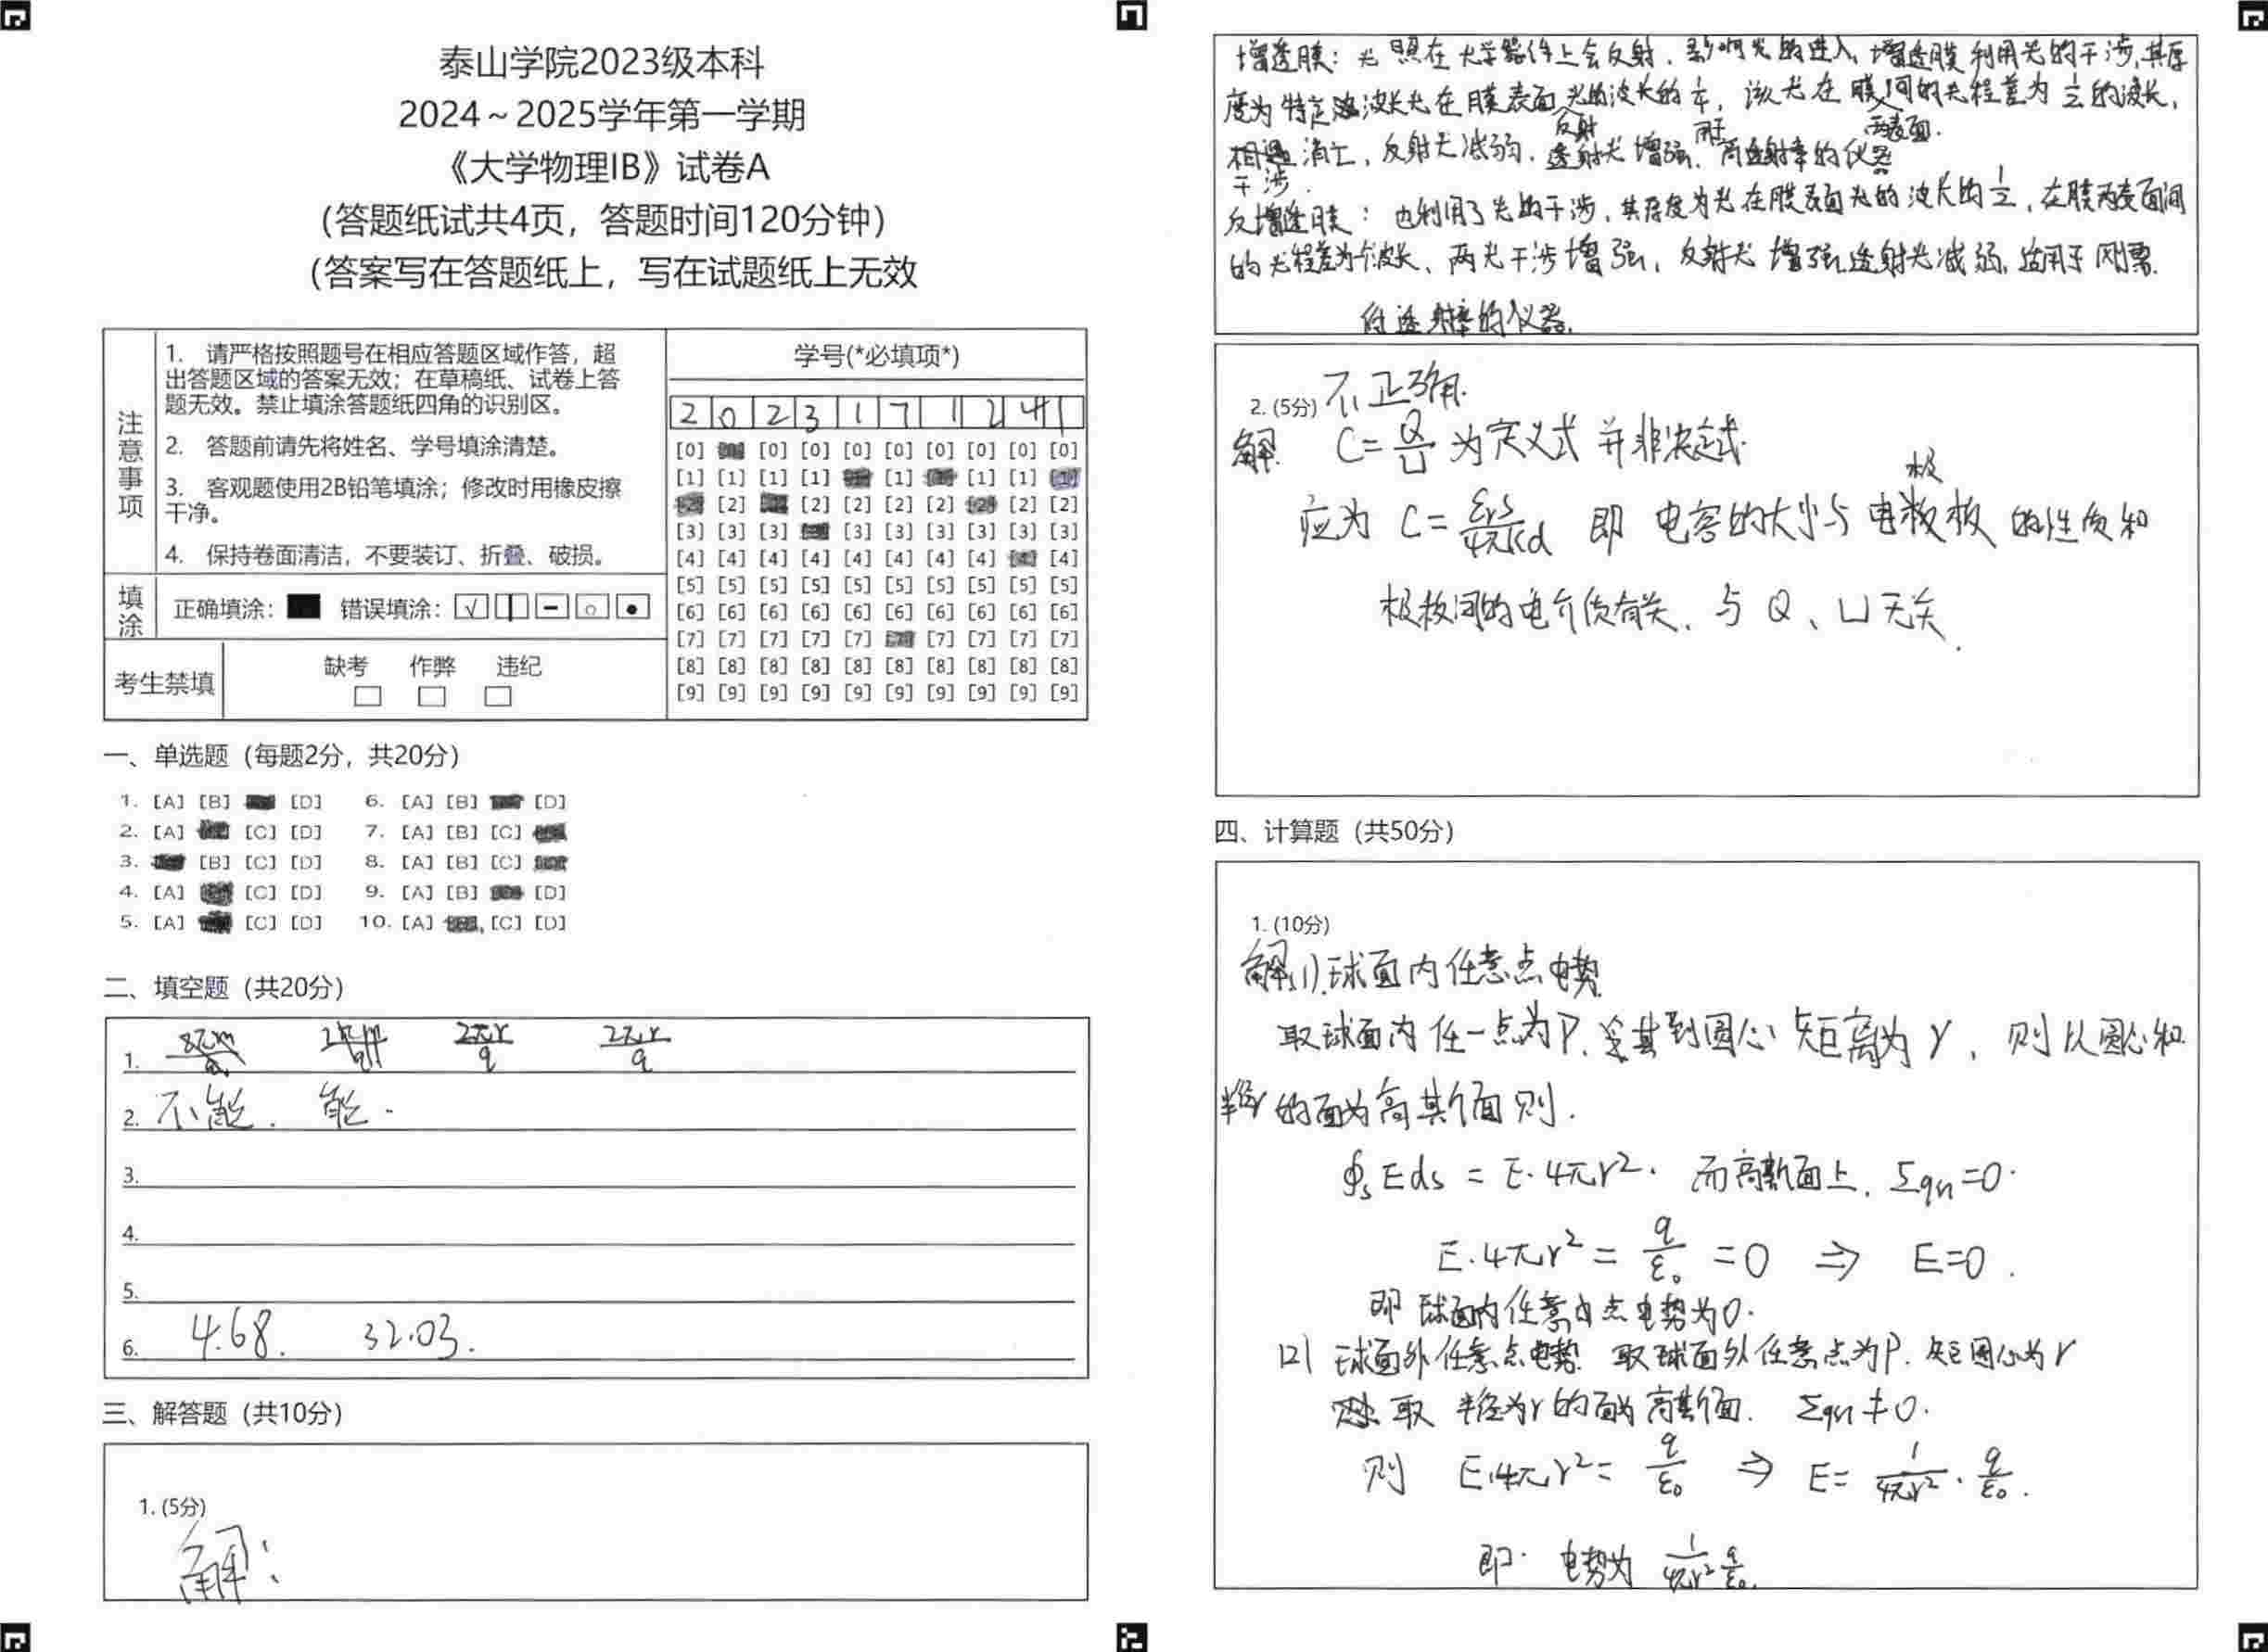 泰山学院2023级本科
2024～2025学年第一学期
《大学物理IB》试卷A
（答题纸试共4页，答题时间120分钟）
（答案写在答题纸上，写在试题纸上无效
注意事项
1. 请严格按照题号在相应答题区域作答，超
出答题区域的答案无效；在草稿纸、试卷上答
题无效。禁止填涂答题纸四角的识别区。
2. 答题前请先将姓名、学号填涂清楚。
3. 客观题使用2B铅笔填涂；修改时用橡皮擦
干净。
4. 保持卷面清洁，不要装订、折叠、破损。
填涂
正确填涂： 错误填涂：
考生禁填
缺考 作弊 违纪
学号(*必填项*)
2 0 2 3 1 7 1 2 4 1
[0] [0] [0] [0] [0] [0] [0] [0] [0]
[1] [1] [1] [1] [1] [1] [1] [1]
[2] [2] [2] [2] [2] [2] [2]
[3] [3] [3] [3] [3] [3] [3] [3] [3]
[4] [4] [4] [4] [4] [4] [4] [4] [4]
[5] [5] [5] [5] [5] [5] [5] [5] [5] [5]
[6] [6] [6] [6] [6] [6] [6] [6] [6] [6]
[7] [7] [7] [7] [7] [7] [7] [7] [7]
[8] [8] [8] [8] [8] [8] [8] [8] [8] [8]
[9] [9] [9] [9] [9] [9] [9] [9] [9] [9]
一、单选题（每题2分，共20分）
1. [A] [B] [D] 6. [A] [B] [D]
2. [A] [C] [D] 7. [A] [B] [C]
3. [B] [C] [D] 8. [A] [B] [C]
4. [A] [C] [D] 9. [A] [B] [D]
5. [A] [C] [D] 10. [A] [C] [D]
二、填空题（共20分）
1. 2πr/q 2πr/q
2. 不能. 能.
3.
4.
5.
6. 4.68. 32.03.
三、解答题（共10分）
1. (5分)
解：
增透膜：光照在光学器件上会反射，影响光的进入，增透膜利用光的干涉，其厚
度为特定波长光在膜表面反射光的波长的1/4，该光在膜两表面间的光程差为1/2的波长，
相遇干涉消亡，反射光减弱，透射光增强，用于高透射率的仪器
反增透膜：也利用了光的干涉，其厚度为光在膜表面光的波长的1/2，在膜两表面间
的光程差为个波长、两光干涉增强，反射光增强透射光减弱，适用于刚需
低透射率的仪器.
2. (5分) 不正确.
解. C=Q/U 为定义式并非决定式.
应为 C=εrS/4πkd 即 电容的大小与电极板的性质和
极板间的电介质有关、与Q、U无关.
四、计算题（共50分）
1. (10分)
解(1).球面内任意点电势
取球面内任一点为P，其到圆心距离为r，则以圆心和
半径r的面为高斯面则.
∮s Eds = E·4πr². 而高斯面上，Σqn=0.
E·4πr² = q/ε₀ = 0 ⇒ E=0.
即 球面内任意点电势为0.
(2) 球面外任意点电势. 取球面外任意点为P. 距圆心为r
取 半径为r的面为高斯面. Σqn≠0.
则 E·4πr² = q/ε₀ ⇒ E= 1/4πr² · q/ε₀.
即. 电势为 1/4πr² q/ε₀.